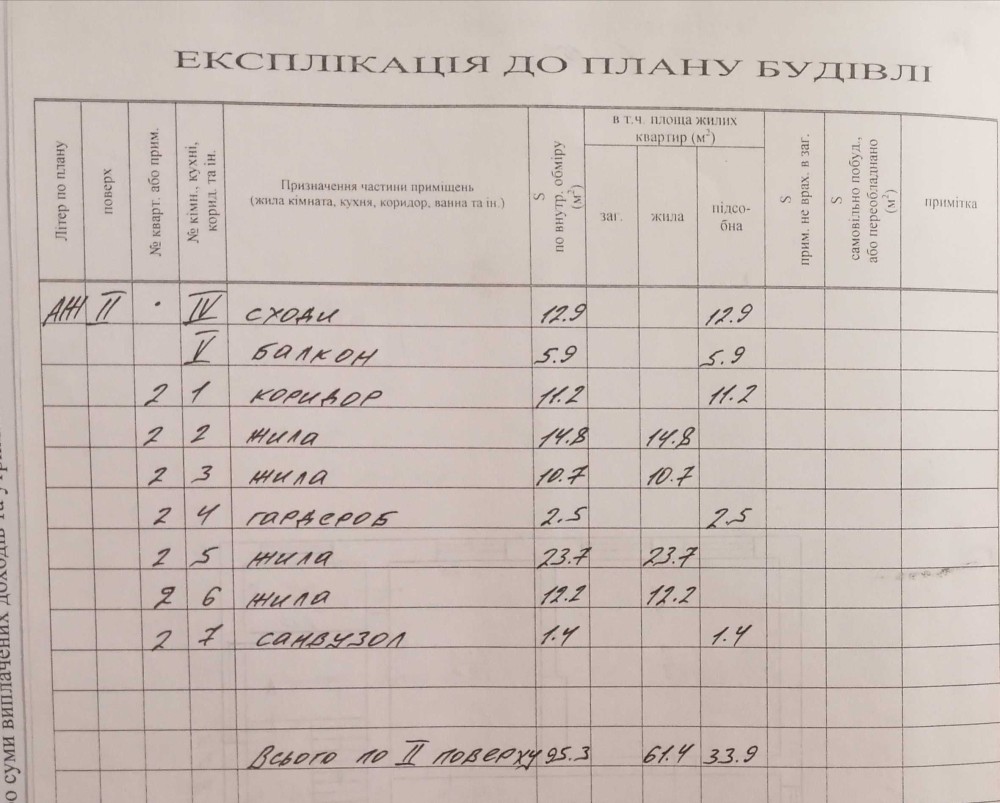 ЕКСПЛІКАЦІЯ ДО ПЛАНУ БУДІВЛІ
Літер по плану
поверх
№ кварт. або прим.
№ кімн., кухні, корид. та ін.
Призначення частини приміщень
(жила кімната, кухня, коридор, ванна та ін.)
S по внутр. обміру (м²)
в т.ч. площа жилих квартир (м²)
заг.
жила
підсо-
бна
S прим. не врах. в заг.
S самовільно побуд., або переобладнано (м²)
примітка
АЖ II IV сходи 12.9 12.9
V балкон 5.9 5.9
2 1 коридор 11.2 11.2
2 2 жила 14.8 14.8
2 3 жила 10.7 10.7
2 4 гардероб 2.5 2.5
2 5 жила 23.7 23.7
2 6 жила 12.2 12.2
2 7 санвузол 1.4 1.4
Всього по II поверху 95.3 61.4 33.9
суми виплачених доходів та